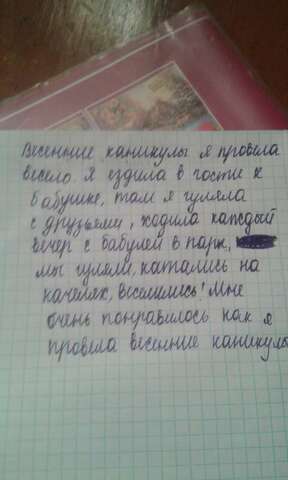 Весенние каникулы я провела
весело. Я ездила в гости к
бабушке, там я гуляла
с друзьями, ходила каждый
вечер с бабулей в парк,
мы гуляли, катались на
качелях, веселились! Мне
очень понравилось как я
провела весенние каникулы